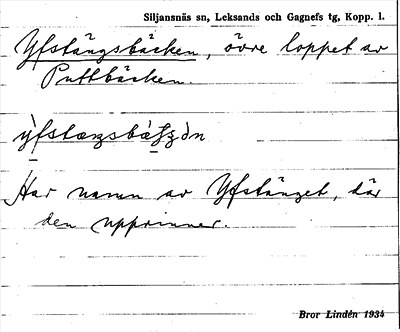 Siljansnäs sn, Leksands och Gagnefs tg, Kopp. l.
Yfstängsbäcken, övre loppet av
Puttbäcken
Har namn av Yfstänget, där
den upprinner.
Bror Lindén 1934